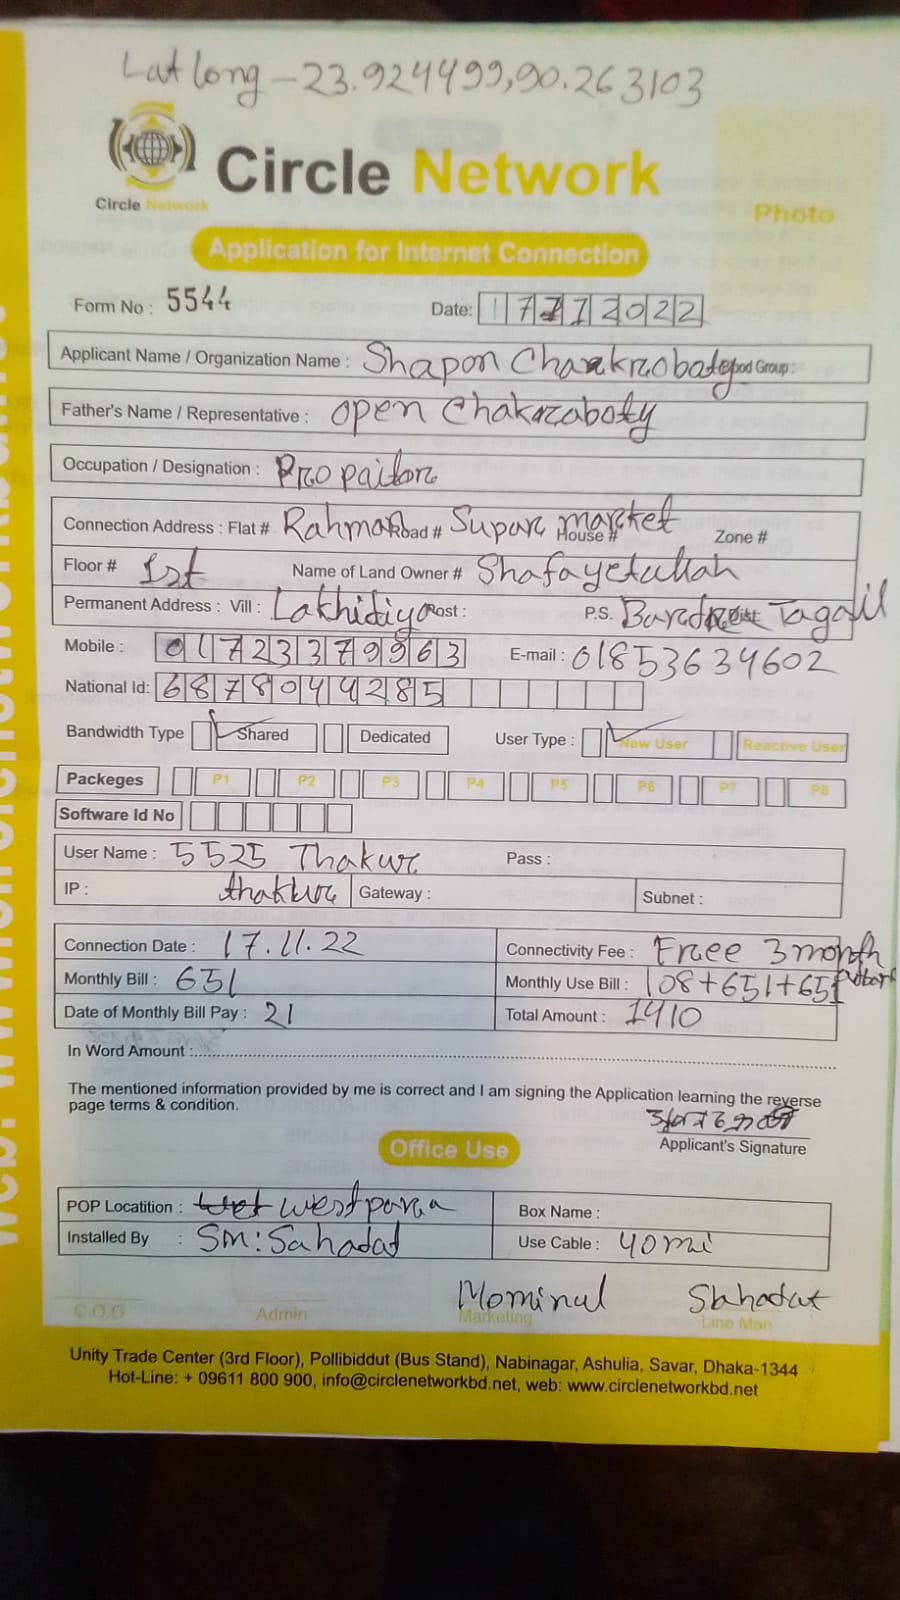 Lat long - 23.924499,90.263103
Circle Network
Circle Network
Photo
Application for Internet Connection
Form No : 5544
Date: 17112022
Applicant Name / Organization Name : Shapon Chankrabaty Blood Group :
Father's Name / Representative : Open Chakraboty
Occupation / Designation : Propaitor
Connection Address : Flat # Rahman Road # Supar market House # Zone #
Floor # 1st Name of Land Owner # Shafayetullah
Permanent Address : Vill : Lakhidiya Post : P.S. Dist: Tagail
Mobile : 01723379963 E-mail : 01853634602
National Id: 6878044285
Bandwidth Type Shared Dedicated User Type : New User Reactive User
Packeges P1 P2 P3 P4 P5 P6 P7 P8
Software Id No
User Name : 5525 Thakur Pass :
IP : thakur Gateway : Subnet :
Connection Date : 17.11.22 Connectivity Fee : Free 3 month
Monthly Bill : 651 Monthly Use Bill : 108+651+651
Date of Monthly Bill Pay : 21 Total Amount : 1410
In Word Amount :
The mentioned information provided by me is correct and I am signing the Application learning the reverse
page terms & condition.
Applicant's Signature
Office Use
POP Locatition : west para Box Name :
Installed By : Sm: Sahadat Use Cable : 40 mi
Mominul Sahadat
C.O.O Admin Marketing Line Man
Unity Trade Center (3rd Floor), Pollibiddut (Bus Stand), Nabinagar, Ashulia, Savar, Dhaka-1344
Hot-Line: + 09611 800 900, info@circlenetworkbd.net, web: www.circlenetworkbd.net